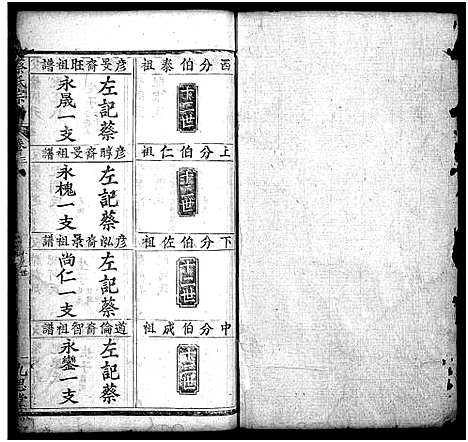 西分伯泰祖
十二世
彥旻齋旺祖譜
左記蔡
永晟一支
上分伯仁祖
十二世
彥醇齋旻祖譜
左記蔡
永槐一支
下分伯佐祖
十二世
彥泓齋景祖譜
左記蔡
尚仁一支
中分伯成祖
十二世
道倫齋智祖譜
左記蔡
永鑾一支